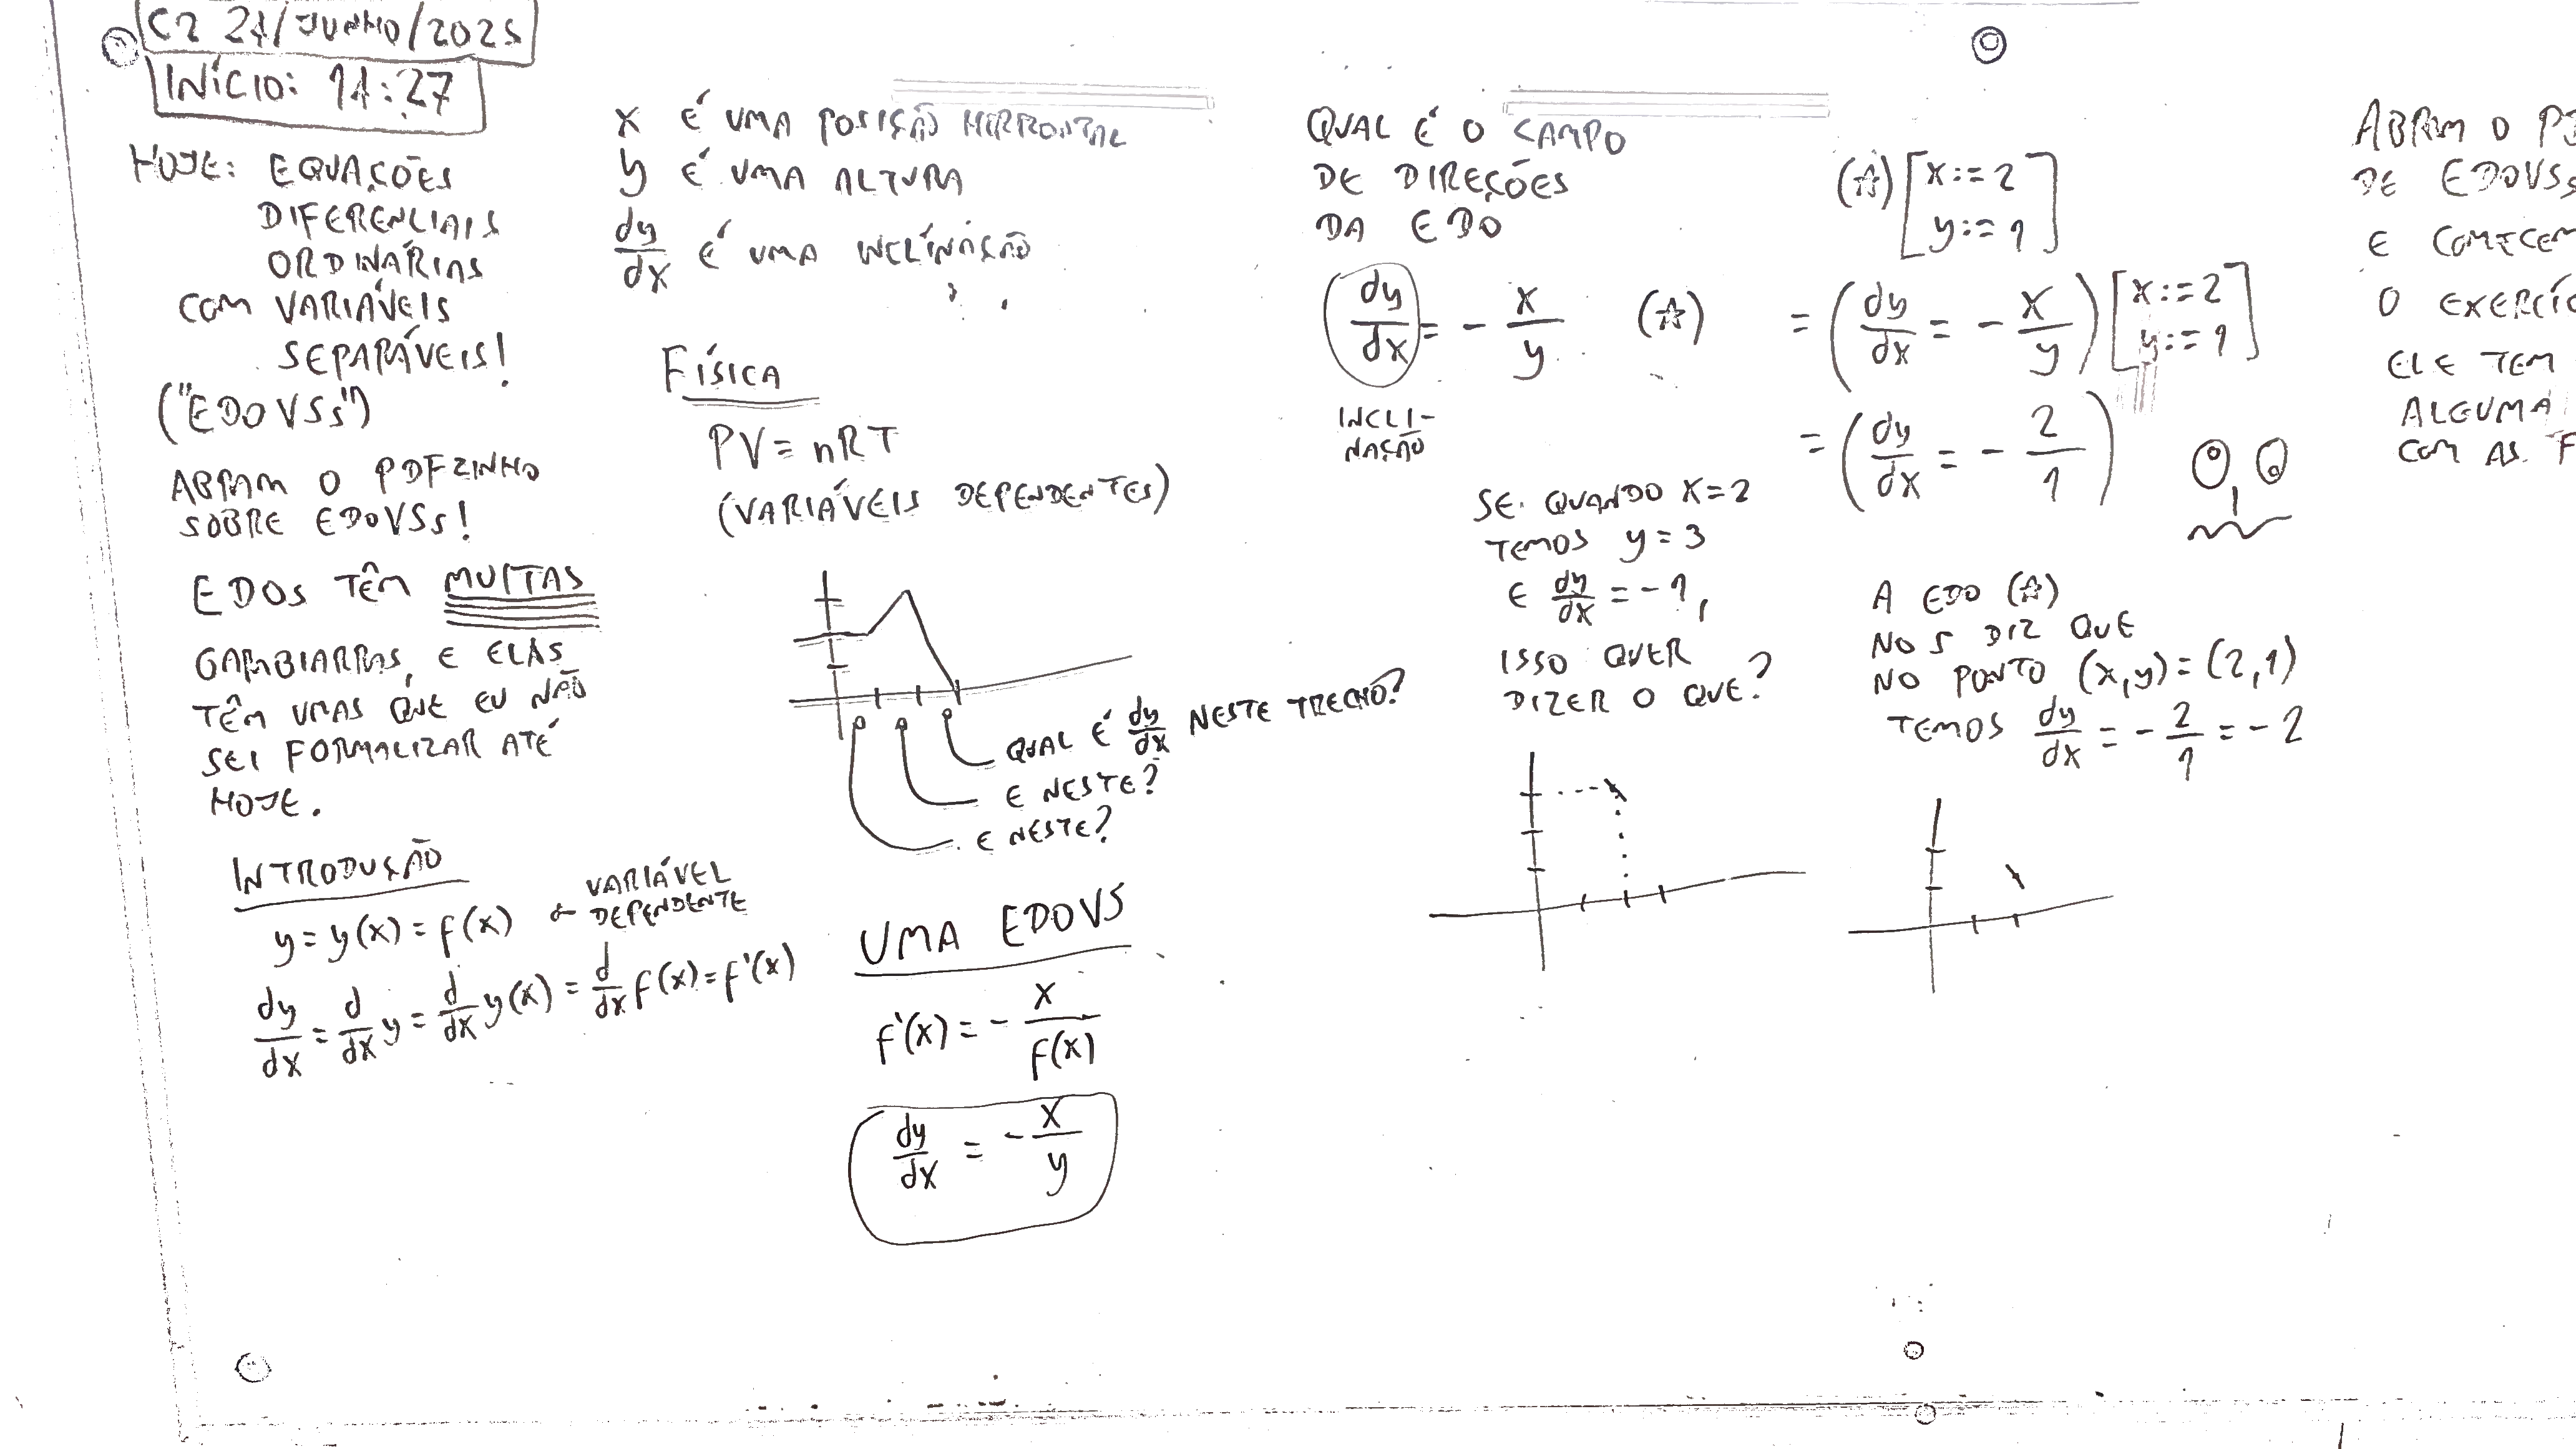 C2 27/JUNHO/2025
INÍCIO: 14:27
HOJE: EQUAÇÕES
DIFERENCIAIS
ORDINÁRIAS
COM VARIÁVEIS
SEPARÁVEIS!
("EDOVSs")
ABRAM O PDFZINHO
SOBRE EDOVSs!
EDOS TÊM MUITAS
GAMBIARRAS, E ELAS
TÊM UMAS QUE EU NÃO
SEI FORMALIZAR ATÉ
HOJE.
INTRODUÇÃO
y = y(x) = f(x) ← VARIÁVEL
DEPENDENTE
dy/dx = d/dx y = d/dx y(x) = d/dx f(x) = f'(x)
x É UMA POSIÇÃO HORIZONTAL
y É UMA ALTURA
dy/dx É UMA INCLINAÇÃO
FÍSICA
PV = nRT
(VARIÁVEIS DEPENDENTES)
QUAL É dy/dx NESTE TRECHO?
E NESTE?
E NESTE?
UMA EDOVS
f'(x) = - x/f(x)
dy/dx = - x/y
QUAL É O CAMPO
DE DIREÇÕES
DA EDO
dy/dx = - x/y (☆)
INCLI-
NAÇÃO
SE QUANDO x=2
TEMOS y=3
E dy/dx = -1,
ISSO QUER
DIZER O QUE?
(☆) [x:=2
y:=1]
= (dy/dx = - x/y) [x:=2
y:=1]
= (dy/dx = - 2/1)
A EDO (☆)
NOS DIZ QUE
NO PONTO (x,y)=(2,1)
TEMOS dy/dx = - 2/1 = -2
ABRAM O
DE EDOVSs
E COMECEM
O
ELE TEM
ALGUMA
COM AS